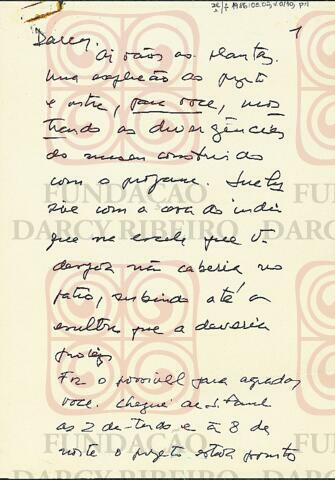 1
Darcy,
Aí vão as plantas.
Uma explicação ao projeto
e outra, para você, mos
trando as divergências
do museu construído
com o programa. Inclu
sive com a casa do índio
que na escala que V.
deseja não caberia no
pátio, subindo até a
que a deveria
proteger.
Fiz o possível para agradar
você. Cheguei de S. Paulo
as 2 da tarde e às 8 da
noite o projeto estava pronto
FUNDAÇÃO
DARCY RIBEIRO
FUNDAÇÃO
DARCY RIBEIRO